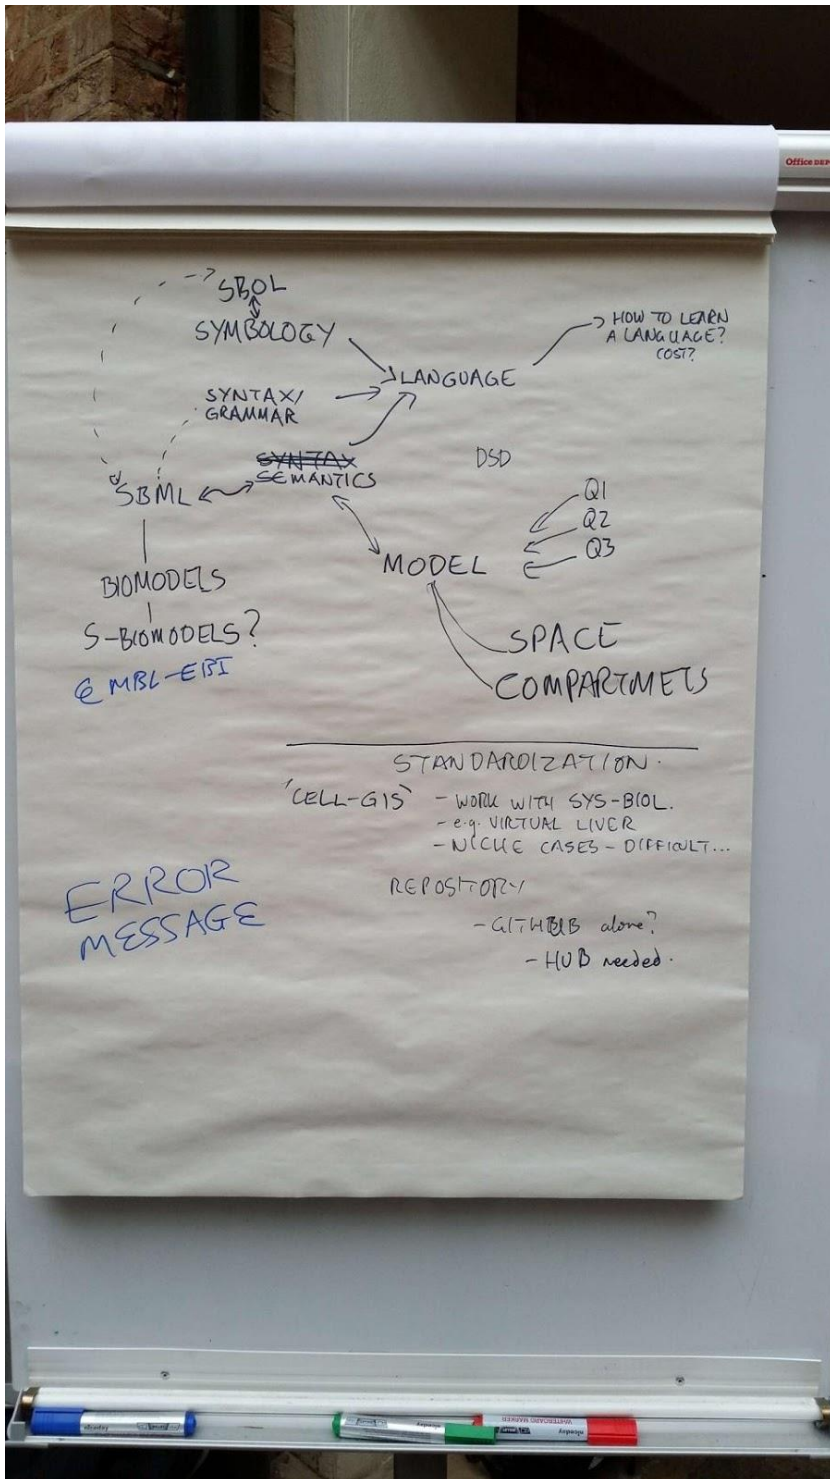 Office DEP
SBOL
SYMBOLOGY
HOW TO LEARN
A LANGUAGE?
COST?
LANGUAGE
SYNTAX/
GRAMMAR
SYNTAX
SEMANTICS
DSD
SBML
Q1
Q2
Q3
MODEL
BIOMODELS
S-BIOMODELS?
EMBL-EBI
SPACE
COMPARTMETS
STANDARDIZATION.
'CELL-GIS'
- WORK WITH SYS-BIOL.
- e.g. VIRTUAL LIVER
- NICHE CASES - DIFFICULT...
REPOSITORY
- GITHBUB alone?
- HUB needed.
ERROR
MESSAGE
niceday
niceday
WHITEBOARD MARKER
niceday